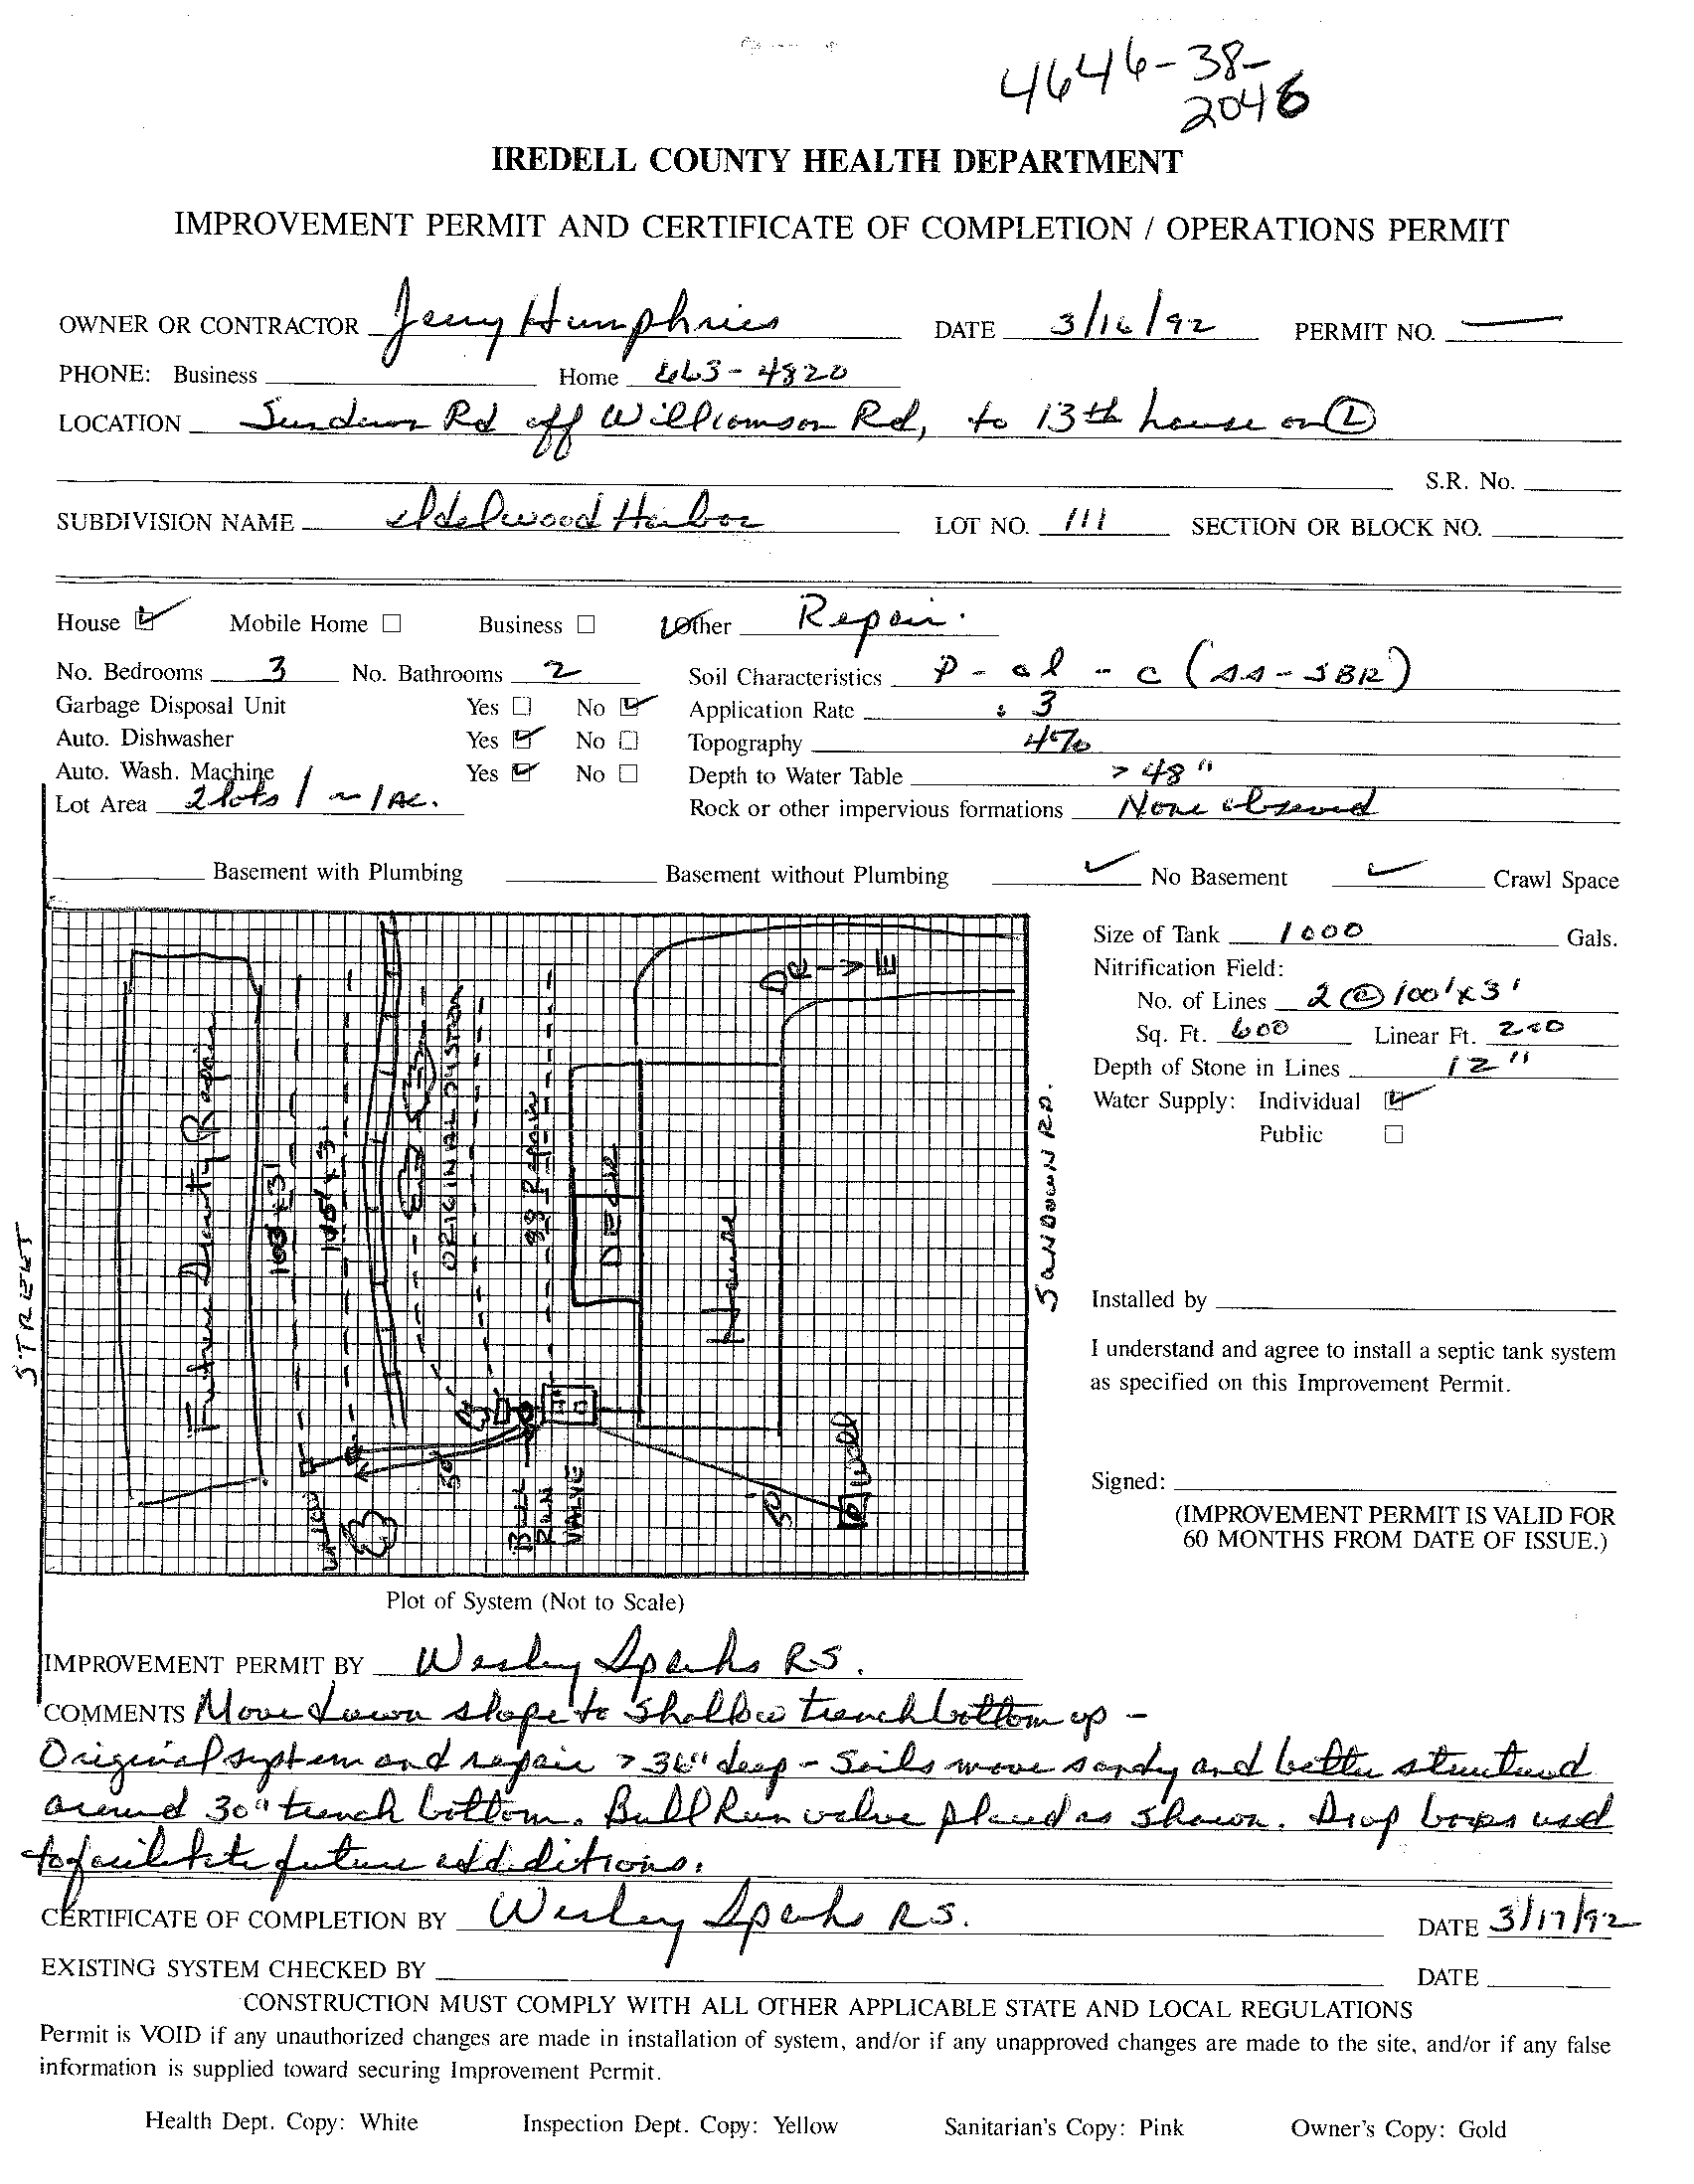 4646-38-
2046
IREDELL COUNTY HEALTH DEPARTMENT
IMPROVEMENT PERMIT AND CERTIFICATE OF COMPLETION / OPERATIONS PERMIT
OWNER OR CONTRACTOR Jerry Humphries DATE 3/16/92 PERMIT NO. —
PHONE: Business Home 663-4820
LOCATION Sundown Rd off Williamson Rd, to 13th house on L
S.R. No.
SUBDIVISION NAME Idelwood Harbor LOT NO. 111 SECTION OR BLOCK NO.
House ✓ Mobile Home □ Business □ Other Repair.
No. Bedrooms 3 No. Bathrooms 2 Soil Characteristics P - cl - c (ss-SBK)
Garbage Disposal Unit Yes □ No ✓ Application Rate .3
Auto. Dishwasher Yes ✓ No □ Topography 4%
Auto. Wash. Machine Yes ✓ No □ Depth to Water Table > 48"
Lot Area 2 lots / ~ 1 Ac. Rock or other impervious formations None observed
Basement with Plumbing Basement without Plumbing ✓ No Basement ✓ Crawl Space
STREET
Future Repair
100'x3'
100'x3'
ORIGINAL SYSTEM
88 Repair
DECK
House
DR → E
SANDOWN RD.
50'
BULL RUN VALVE
50'
Well
Plot of System (Not to Scale)
Size of Tank 1000 Gals.
Nitrification Field:
No. of Lines 2 @ 100'x3'
Sq. Ft. 600 Linear Ft. 200
Depth of Stone in Lines 12"
Water Supply: Individual ✓
Public □
Installed by
I understand and agree to install a septic tank system
as specified on this Improvement Permit.
Signed:
(IMPROVEMENT PERMIT IS VALID FOR
60 MONTHS FROM DATE OF ISSUE.)
IMPROVEMENT PERMIT BY Wesley Sparks RS.
COMMENTS Move down slope to shallow trench bottom up -
Original system and repair > 36" deep - Soils more sandy and better structured
around 30" trench bottom. Bull Run valve placed as shown. Drop boxes used
to facilitate future additions.
CERTIFICATE OF COMPLETION BY Wesley Sparks RS. DATE 3/17/92
EXISTING SYSTEM CHECKED BY DATE
CONSTRUCTION MUST COMPLY WITH ALL OTHER APPLICABLE STATE AND LOCAL REGULATIONS
Permit is VOID if any unauthorized changes are made in installation of system, and/or if any unapproved changes are made to the site, and/or if any false
information is supplied toward securing Improvement Permit.
Health Dept. Copy: White Inspection Dept. Copy: Yellow Sanitarian's Copy: Pink Owner's Copy: Gold